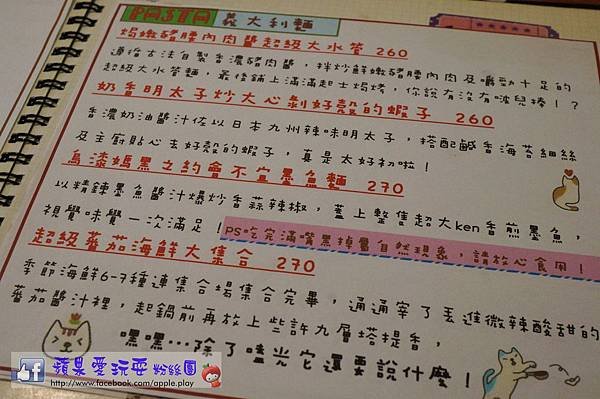 PASTA 義大利麵
焗嫩豬腰內肉醬超級大水管 260
遵循古法自製香濃豬肉醬，拌炒鮮嫩豬腰內肉及嚼勁十足的
超級大水管麵，最後鋪上滿滿起士焗烤，你說有沒有啵兒棒！？
奶香明太子炒大心剝好殼的蝦子 260
香濃奶油醬汁佐以日本九州辣味明太子，搭配鹹香海苔細絲
及主廚貼心去好殼的蝦子，真是太好初啦！
烏漆媽黑之約會不宜墨魚麵 270
以精鍊墨魚醬汁爆炒香蒜辣椒，蓋上整隻超大ken香煎墨魚，
視覺味覺一次滿足！
PS吃完滿嘴黑掉屬自然現象，請放心食用！
超級蕃茄海鮮大集合 270
季節海鮮6-7種連集合場集合完畢，通通宰了丟進微辣酸甜的
蕃茄醬汁裡，起鍋前再放上些許九層塔提香，
嘿嘿…除了嗑光它還要說什麼！
蘋果愛玩耍 粉絲團
http://www.facebook.com/apple.play